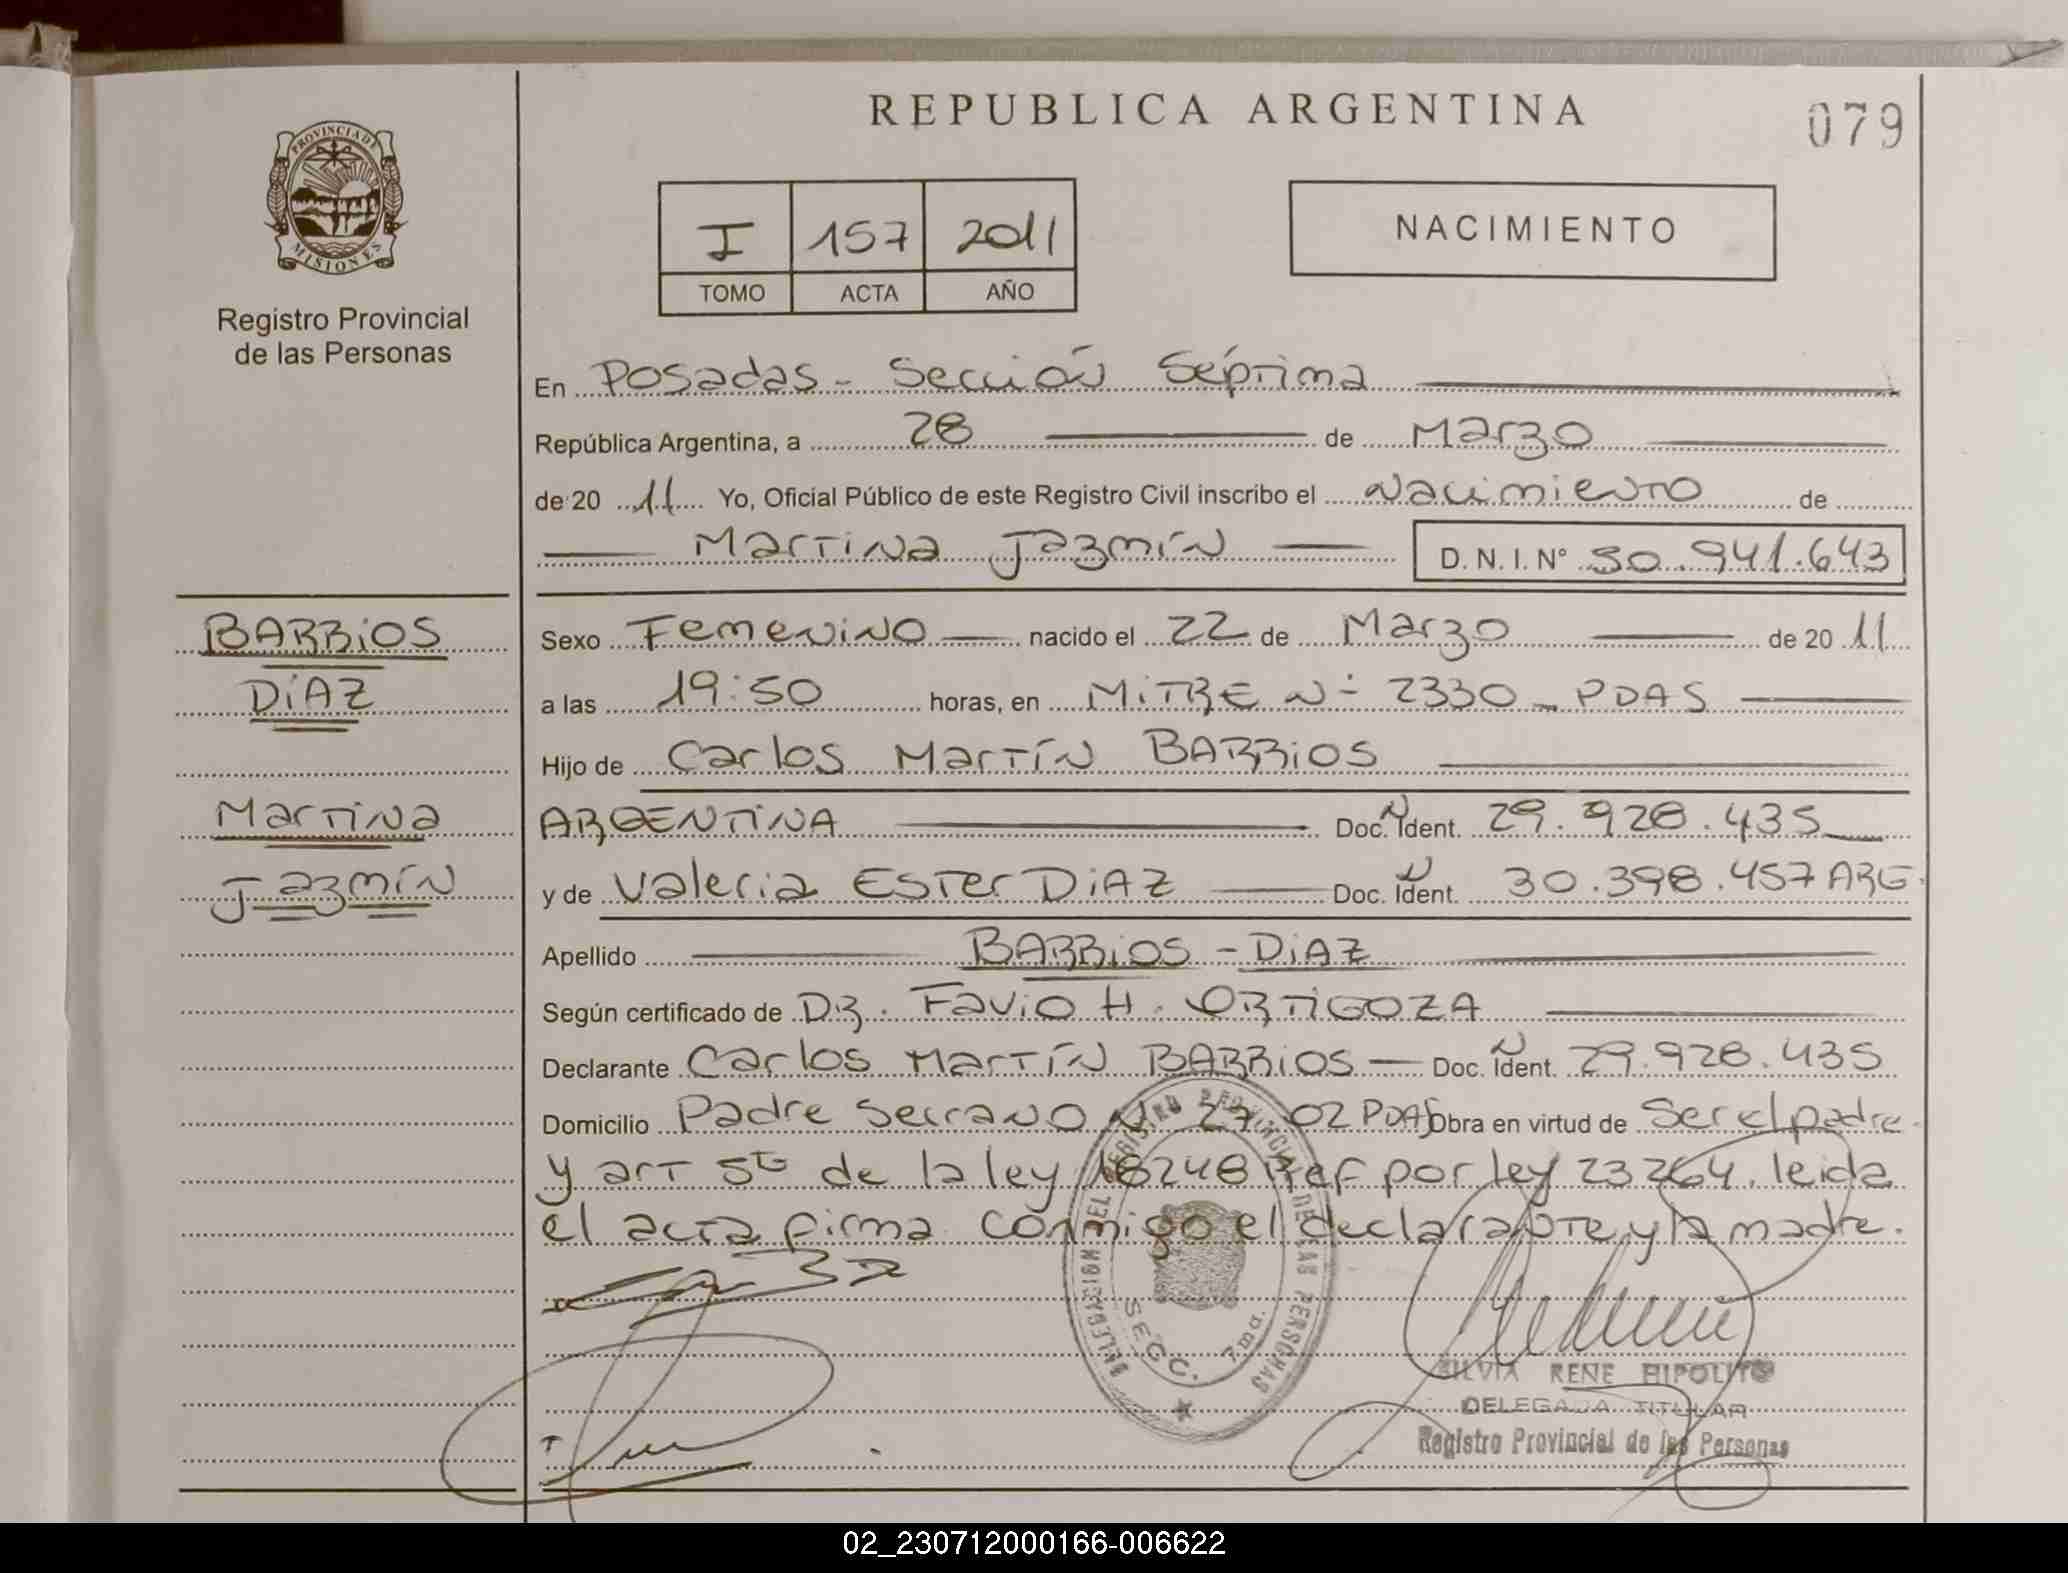 REPUBLICA ARGENTINA
079
PROVINCIA DE
MISIONES
Registro Provincial
de las Personas
I 157 2011
TOMO ACTA AÑO
NACIMIENTO
En Posadas - Sección Séptima
República Argentina, a 28 de Marzo
de 20 11 Yo, Oficial Público de este Registro Civil inscribo el Nacimiento de
Martina Jazmín D. N. I. N° 50.941.643
BARRIOS
DiAZ
Martina
Jazmín
Sexo Femenino nacido el 22 de Marzo de 20 11
a las 19:50 horas, en MiTRE N- 2330 - PDAS
Hijo de Carlos Martín BARRiOS
ARGENTiNA Doc. N Ident. 29.928.435
y de Valeria Ester DiAZ Doc. N Ident. 30.398.457 ARG.
Apellido BARRiOS - DiAZ
Según certificado de DR. Favio H. ORTiGOZA
Declarante Carlos Martín BARRiOS - Doc. N Ident. 29.928.435
Domicilio Padre Serrano N- 2702 PDAS Obra en virtud de Ser el padre
y art 5to de la ley 18248 Ref por ley 23264. leida
el acta firma conmigo el declarante y la madre.
DELEGACION DEL REGISTRO PROVINCIAL DE LAS PERSONAS
SECC. 7ma.
SILVIA RENE HIPOLITO
DELEGADA TITULAR
Registro Provincial de las Personas
02_230712000166-006622